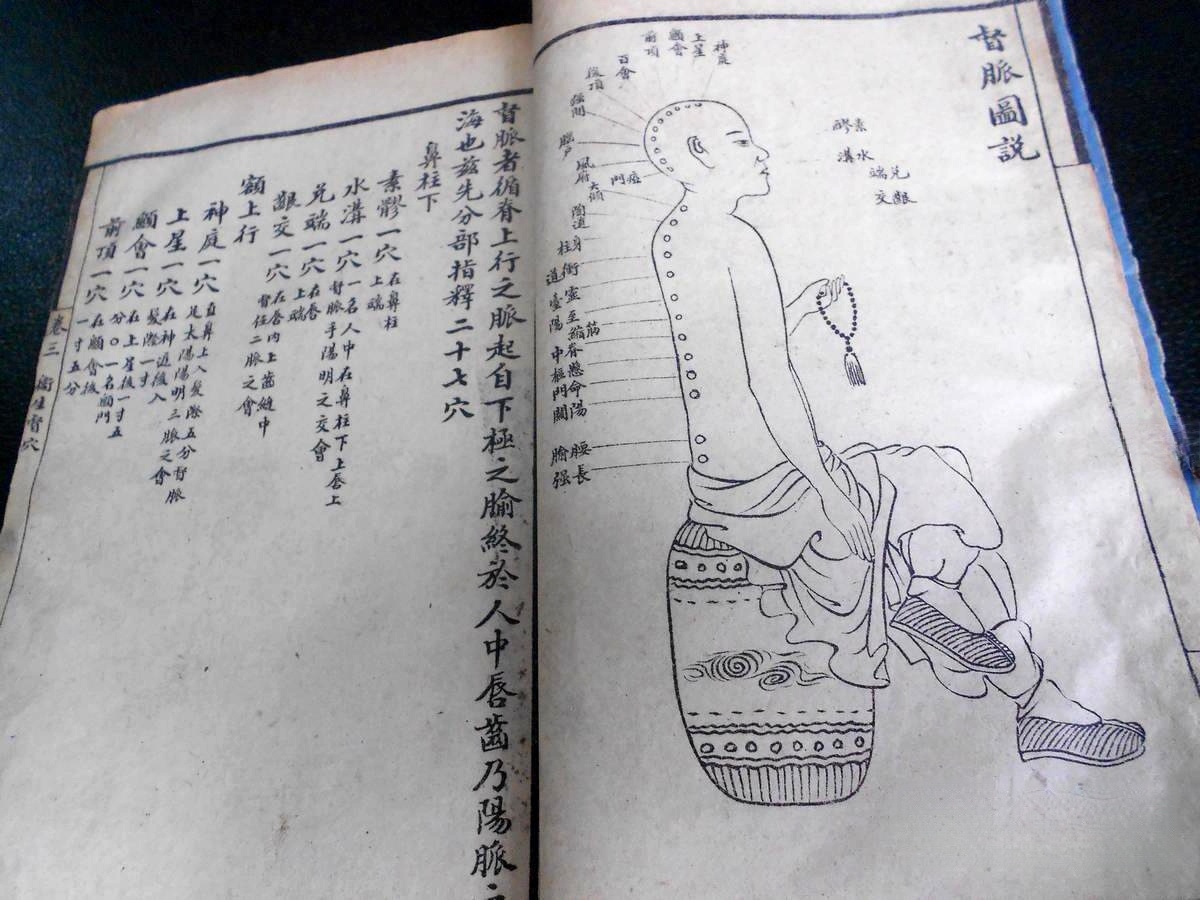 督脈圖說
神庭
上星
顖會
前頂
百會
後頂
強間
腦戶
風府
瘂門
大顀
陶道
身柱
道
靈臺
至陽
筋縮
脊中
懸樞
命門
陽關
腰腧
長强
素髎
水溝
兌端
齦交
督脈者循脊上行之脈起自下極之腧終於人中唇齒乃陽脈之
海也茲先分部指釋二十七穴
鼻柱下
素髎一穴 在鼻柱上端
水溝一穴 一名人中在鼻柱下上唇上督脈手陽明之交會
兌端一穴 在唇上端
齦交一穴 在唇內上齒縫中督任二脈之會
額上行
神庭一穴 直鼻上入髮際五分督脈足太陽陽明三脈之會
上星一穴 在神道後入髮際一寸
顖會一穴 在上星後一寸五分〇一名顖門
前頂一穴 在顖會後一寸五分
卷三
督穴